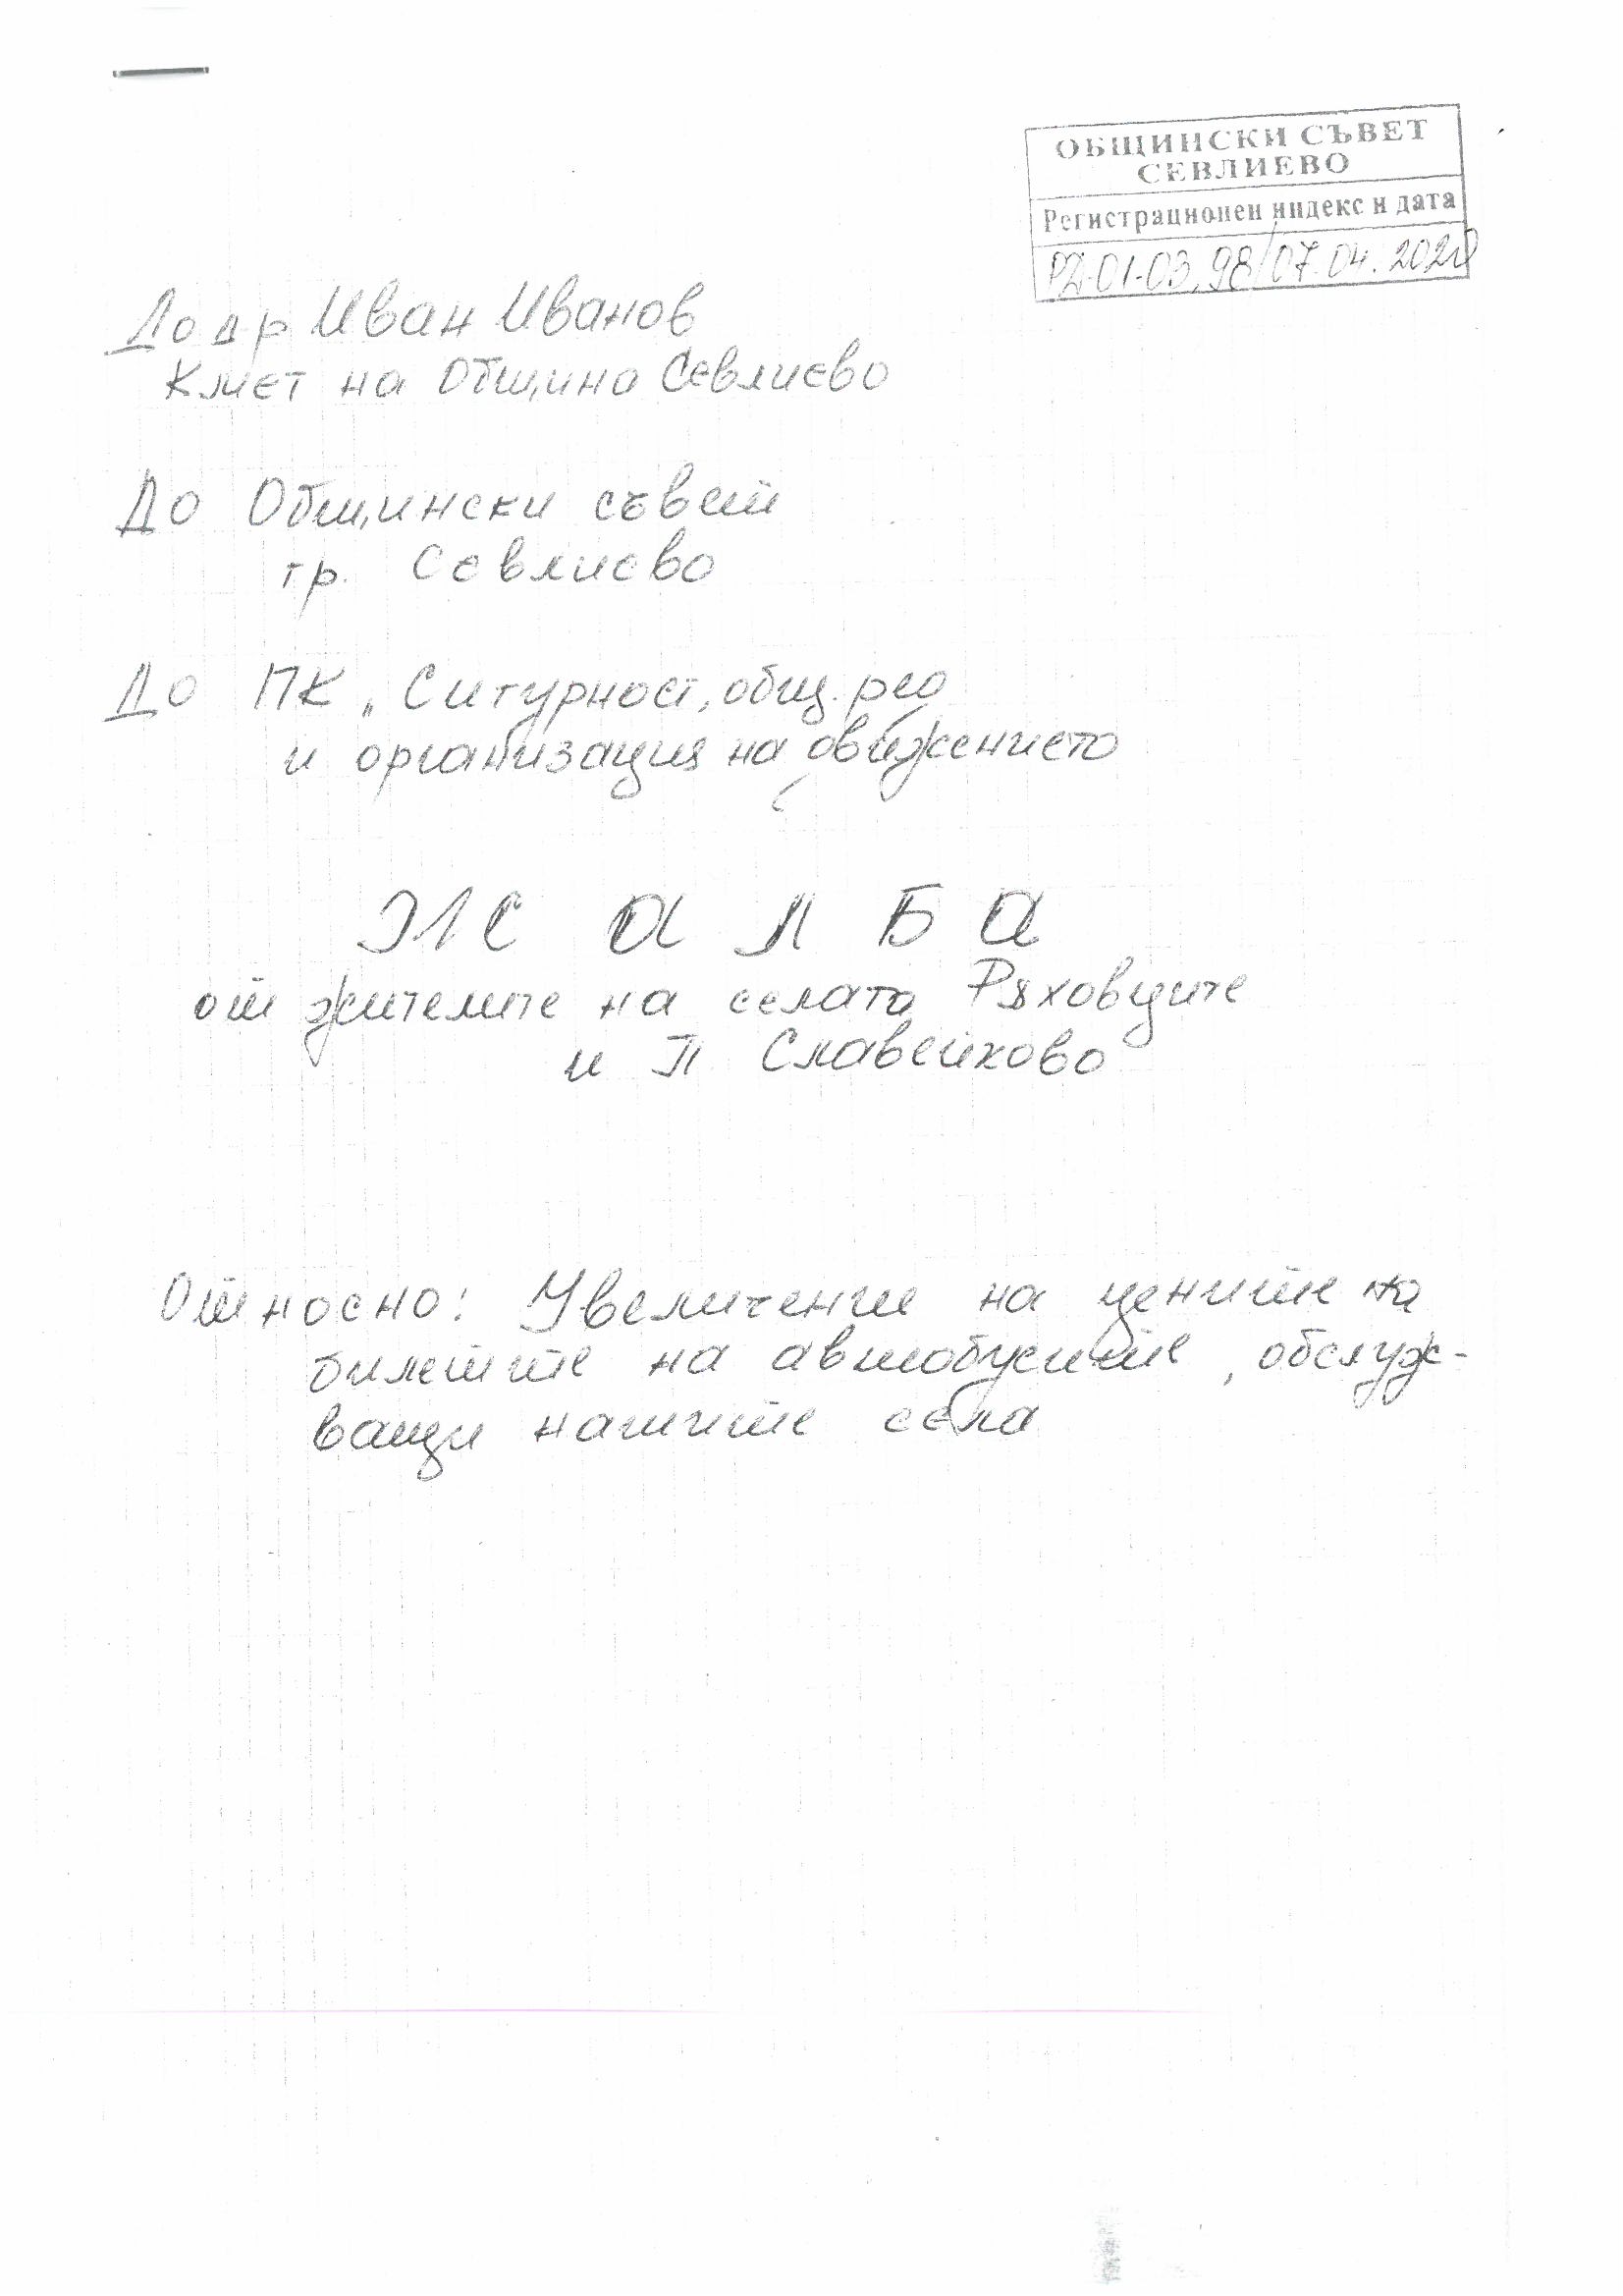 ОБЩИНСКИ СЪВЕТ
СЕВЛИЕВО
Регистрационен индекс и дата
РД-01-03, 98/07.04.202
До д-р Иван Иванов
Кмет на Община Севлиево
До Общински съвет
гр. Севлиево
До ПК „Сигурност, общ. ред
и организация на движението
ЖАЛБА
от жителите на селата Ряховците
и П Славейково
Относно: Увеличение на цените на
билетите на автобусите, обслуж-
ващи нашите села